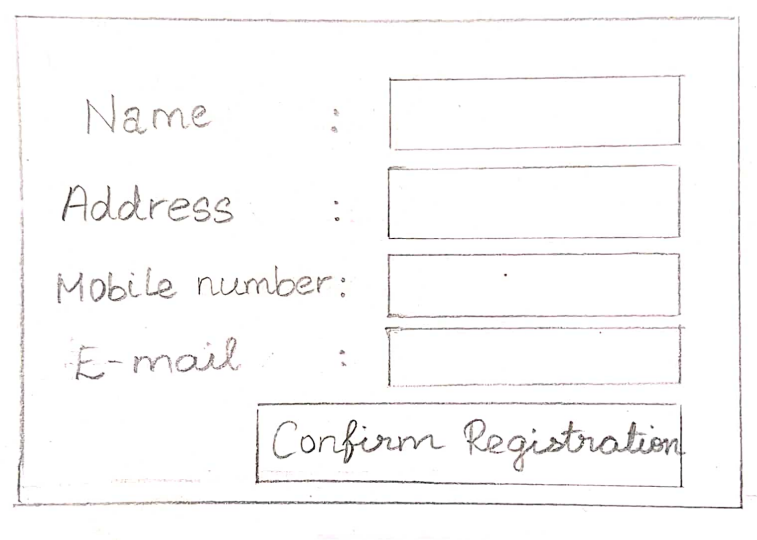 Name :
Address :
Mobile number:
E-mail :
Confirm Registration